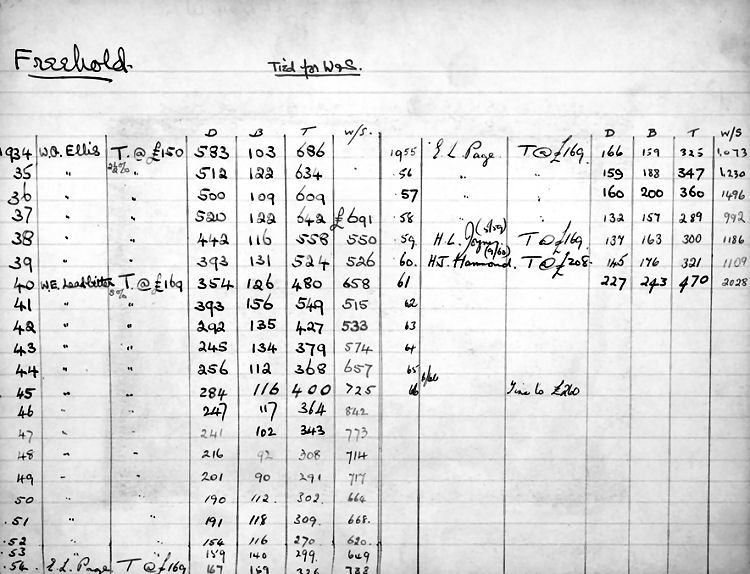 Freehold.
Tied for W&S.
D B T W/S. D B T W/S
1934 W.A. Ellis T. @ £150 583 103 686 1955 E.L. Page T @ £169. 166 159 325 1,073
35 " 2½% " 512 122 634 . 56 " " 159 188 347 1,230
36 " " 500 109 609 .57 " " 160 200 360 1496
37 " " 520 122 642 £691 58 " " 132 157 289 992
38 " " 442 116 558 550 59. H.L. (5/59) T @ £169. 137 163 300 1186
39 " " 393 131 524 526 60. H.J. Hammond. (9/60) T @ £208. 145 176 321 1109
40 W.E. Leadbitter T. @ £169 354 126 480 658 61 227 243 470 2028
41 " 5% " 393 156 549 515 62
42 " " 292 135 427 533 63
43 " " 245 134 379 574 64
44 " " 256 112 368 657 65
45 " " 284 116 400 725 66 6/66 to £260
46 " " 247 117 364 842
47 " " 241 102 343 773
48 " " 216 92 308 714
49 " " 201 90 291 717
50 " " 190 112. 302. 664
.51 " " 191 118 309. 668.
.52 " " 154 116 270. 620.
.53 " " 159 140 299. 649
.54 E.L. Page T @ £169 167 159 326 788